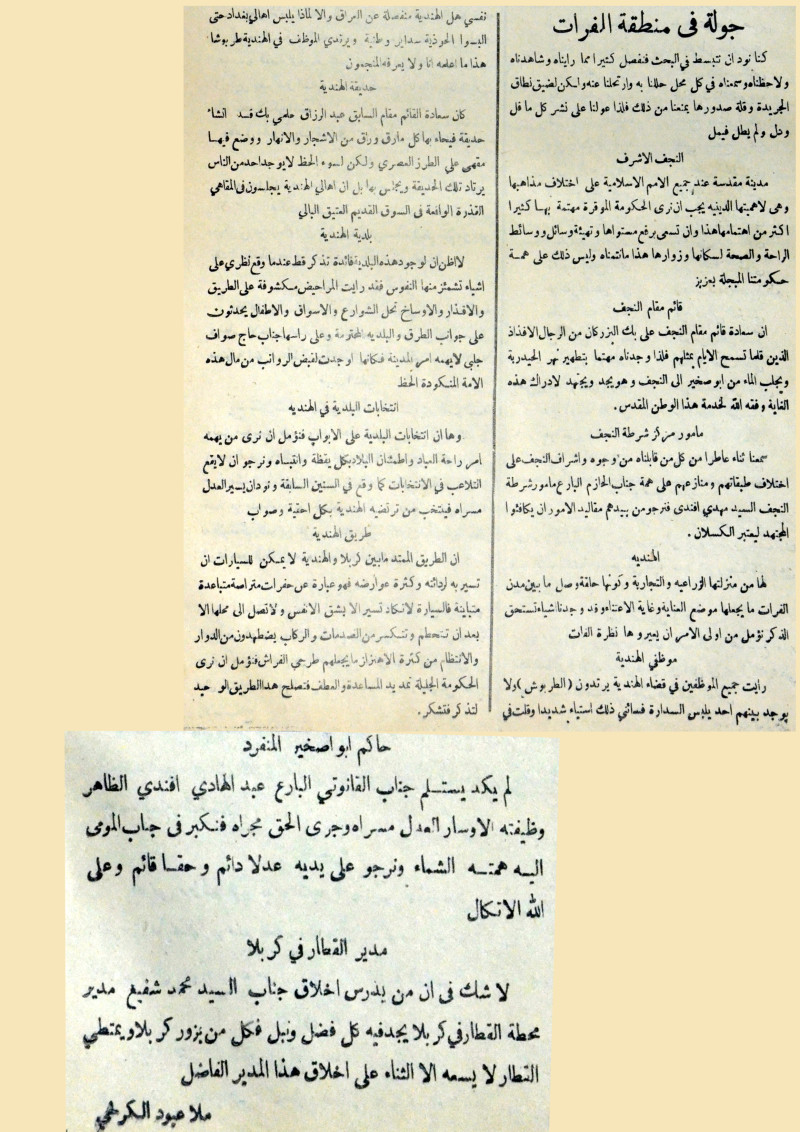 جولة فى منطقة الفرات
كنا نود ان نتبسط في البحث فنفصل كثيرا مما رايناه وشاهدناه
ولاحظناه وسمعناه في كل محل حللنا به وارتحلنا عنه ولكن لضيق نطاق
الجريدة وقلة صدورها يمنعنا من ذلك فلذا عولنا على نشر كل ما قل
ودل ولم يطل فيمل
النجف الاشرف
مدينة مقدسة عند جميع الامم الاسلامية على اختلاف مذاهبها
وهى لاهميتها الدينيه يجب ان نرى الحكومة الموقرة مهتمة بها كثيرا
اكثر من اهتمامها هذا وان تسمى برفع مستواها وتهيئة وسائل ووسائط
الراحة والصحة لسكانها وزوارها هذا ما نتمناه وليس ذلك على همة
حكومتنا المبجلة بعزيز
قائم مقام النجف
ان سعادة قائم مقام النجف على بك البزركان من الرجال الافذاذ
الذين قلما تسمح الايام بمثلهم فلذا وجدناه مهتما بتطهير نهر الحيدرية
ويجلب الماء من ابو صخير الى النجف وهو يجد ويجتهد لادراك هذه
الغاية وفقه الله لخدمة هذا الوطن المقدس.
مامور مركز شرطة النجف
سمعنا ثناء عاطرا من كل من قابلناه من وجوه واشراف النجف على
اختلاف طبقاتهم ومنازعهم على همة جناب الحازم البارع مامور شرطة
النجف السيد مهدي افندى فنرجو من بيدهم مقاليد الامور ان يكافئوا
المجتهد ليعتبر الكسلان.
الهنديه
لها من منزلتها الزراعيه والتجارية وكونها حلقة وصل ما بين مدن
الفرات ما يجعلها موضع العناية وغاية الاعتناء وقد وجدنا اشياء تستحق
الذكر نؤمل من اولى الامر ان يعيروها نظرة الفات
موظفي الهندية
رايت جميع الموظفين في قضاء الهندية يرتدون (الطربوش) ولا
يوجد بينهم احد يلبس السدارة فسائني ذلك استياء شديدا وقلت في
نفسي هل الهندية منفصلة عن العراق والا لماذا يلبس اهالي بغداد حتى
البسوا الحوذية سداير وطنية ويرتدي الموظف في الهندية طربوشا
هذا ما اعلمه انا ولا يعرفه المنجمون
حديقة الهندية
كان سعادة القائم مقام السابق عبد الرزاق حلمي بك قد انشاء
حديقة فيحاء بها كل مارق وراق من الاشجار والانهار ووضع فيها
مقهى على الطرز العصري ولكن لسوء الحظ لا يوجد احد من الناس
يرتاد تلك الحديقة ويجلس بها بل ان اهالي الهندية يجلسون في المقاهي
القذرة الواقعة في السوق القديم العتيق البالي
بلدية الهندية
لا اظن ان لوجود هذه البلدية فائدة تذكر قط عندما وقع نظري على
اشياء تشمئز منها النفوس فقد رايت المراحيض مكشوفة على الطريق
والاقذار والاوساخ تحل الشوارع والاسواق والاطفال يحدثون
على جوانب الطرق والبلديه المحترمة وعلى راسها جناب حاج صواف
جلبي لا يهمه امر المدينة فكانها اوجدت لقبض الرواتب من مال هذه
الامة المنكودة الحظ
انتخابات البلدية في الهنديه
وها ان انتخابات البلدية على الابواب فنؤمل ان نرى من يهمه
امر راحة العباد واطمئنان البلاد بكل يقظة وانتباه ونرجو ان لا يقع
التلاعب في الانتخابات كما وقع في السنين السابقة ونود ان يسير العدل
مسراه فينتخب من ترتضيه الهندية بكل احقية وصواب
طريق الهندية
ان الطريق الممتد مابين كربلا والهندية لا يمكن للسيارات ان
تسير به لردائته وكثرة عوارضه فهو عبارة عن حفرات متراصة متباعدة
متباينة فالسيارة لا تكاد تسير الا بشق الانفس ولا تصل الى محلها الا
بعد ان تتحطم وتتكسر من الصدمات والركاب يضطهدون من الدوار
والانتظام من كثرة الاهتزاز ما يجعلهم طرحي الفراش فنؤمل ان نرى
الحكومة الجليلة تمد يد المساعدة والعطف فتصلح هذا الطريق الوحيد
لتذكر فتشكر.
حاكم ابو اصخير المنفرد
لم يكد يستلم جناب القانوني البارع عبد الهادي افندي الظاهر
وظيفته الا وسار العدل مسراه وجرى الحق مجراه فنكبر فى جناب المومى
اليه همته الشماء ونرجو على يديه عدلا دائم وحقا قائم وعلى
الله الاتكال
مدير القطار في كربلا
لا شك فى ان من يدرس اخلاق جناب السيد محمد شفيع مدير
محطة القطار في كربلا يجد فيه كل فضل ونبل فكل من يزور كربلا ويمتطي
القطار لا يسعه الا الثناء على اخلاق هذا المدير الفاضل
ملا عبود الكرخي